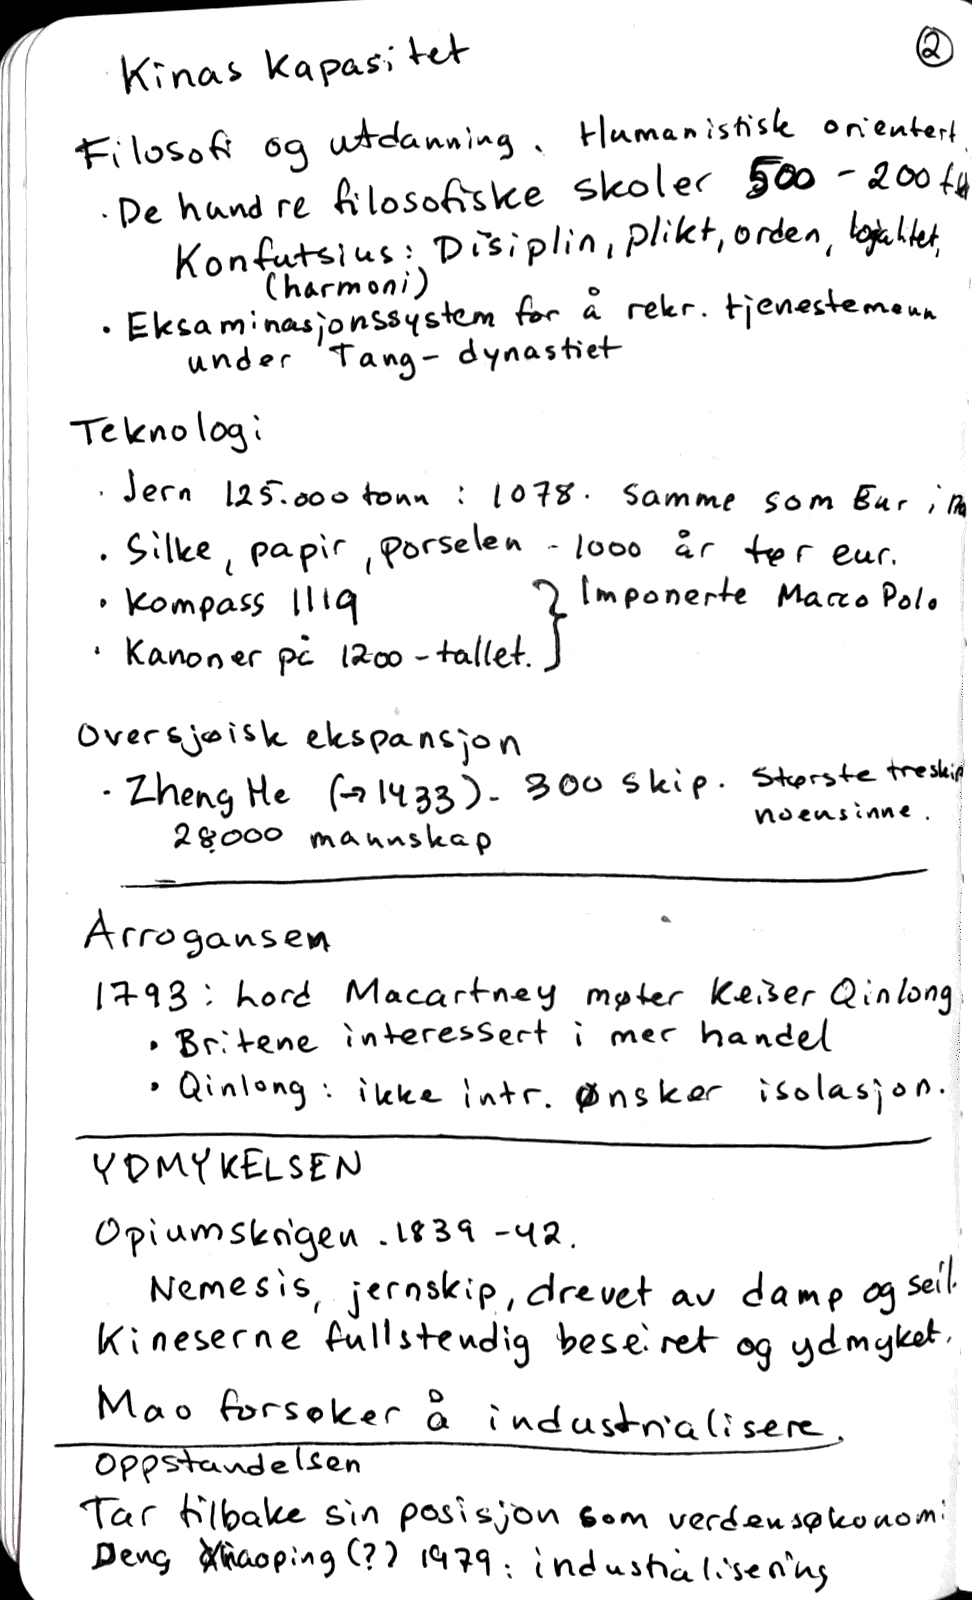 Kinas kapasitet
②
Filosofi og utdanning. Humanistisk orientert.
· De hundre filosofiske skoler 500 - 200 f
Konfutsius: Disiplin, plikt, orden, lojalitet,
(harmoni)
· Eksaminasjonssystem for å rekr. tjenestemenn
under Tang-dynastiet
Teknologi
· Jern 125.000 tonn : 1078. Samme som Eur i
· Silke, papir, porselen - 1000 år før eur.
· Kompass 1119
} Imponerte Marco Polo
· Kanoner på 1200-tallet.
Oversjøisk ekspansjon
· Zheng He (→1433). 300 skip. Største treskip
noensinne.
28000 mannskap
Arrogansen
1793: Lord Macartney møter Keiser Qinlong
· Britene interessert i mer handel
· Qinlong: ikke intr. Ønsker isolasjon.
YDMYKELSEN
Opiumskrigen. 1839-42.
Nemesis, jernskip, drevet av damp og seil.
Kineserne fullstendig beseiret og ydmyket.
Mao forsøker å industrialisere.
Oppstandelsen
Tar tilbake sin posisjon som verdensøkonomi
Deng Xiaoping (?) 1979: industrialisering